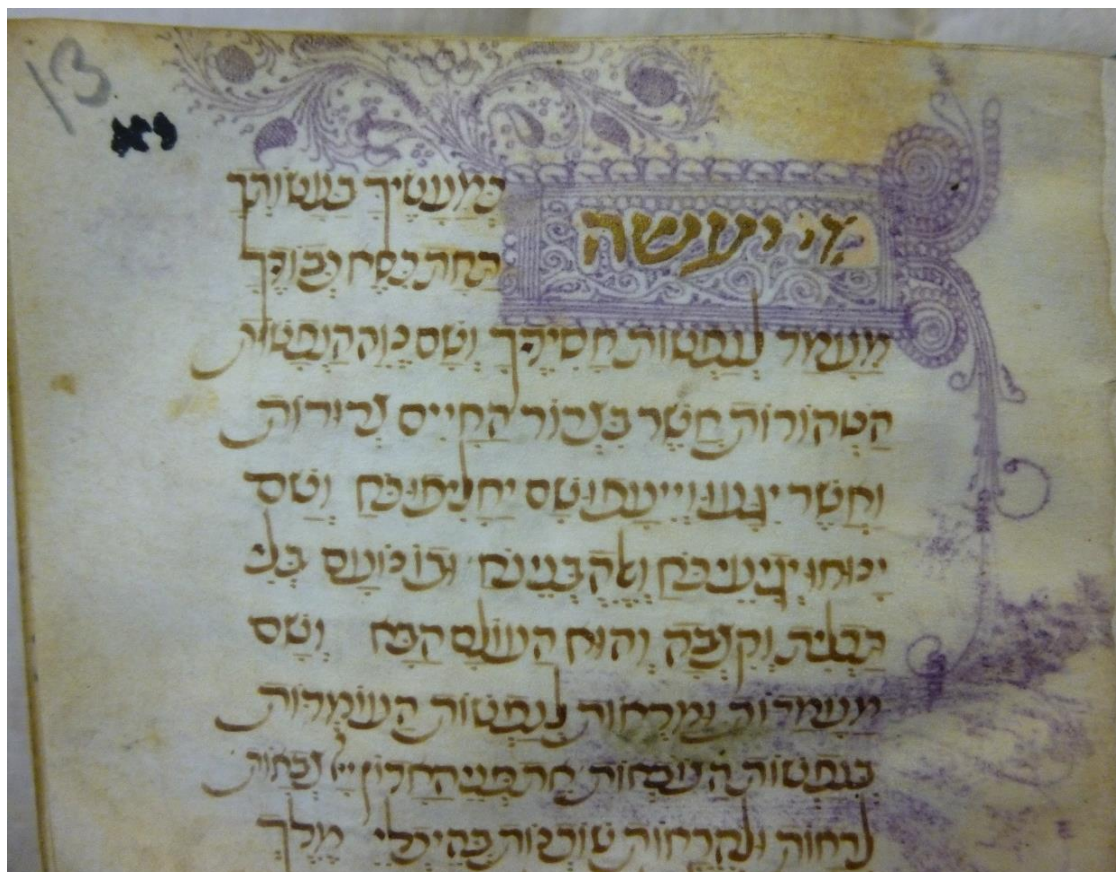 13
יא
מי יעשה
כמעשיך בעשותך
תחת כסא כבודך
מעמד לנפשות חסידיך ושם נוה הנפשות
הטהורות אשר בצרור החיים צרורות
ואשר יגעו וייעפו שם יחליפו כח ושם
ינוחו יגיעי כח ואלה בני נח ובו נועם בלי
תכלית וקצבה והוא העולם הבא ושם
מעמדות ומראות לנפשות העומדות
בנפשות הצובאות את פני האדון צבאות
לראות ולהראות שוכנות בהיכלי מלך